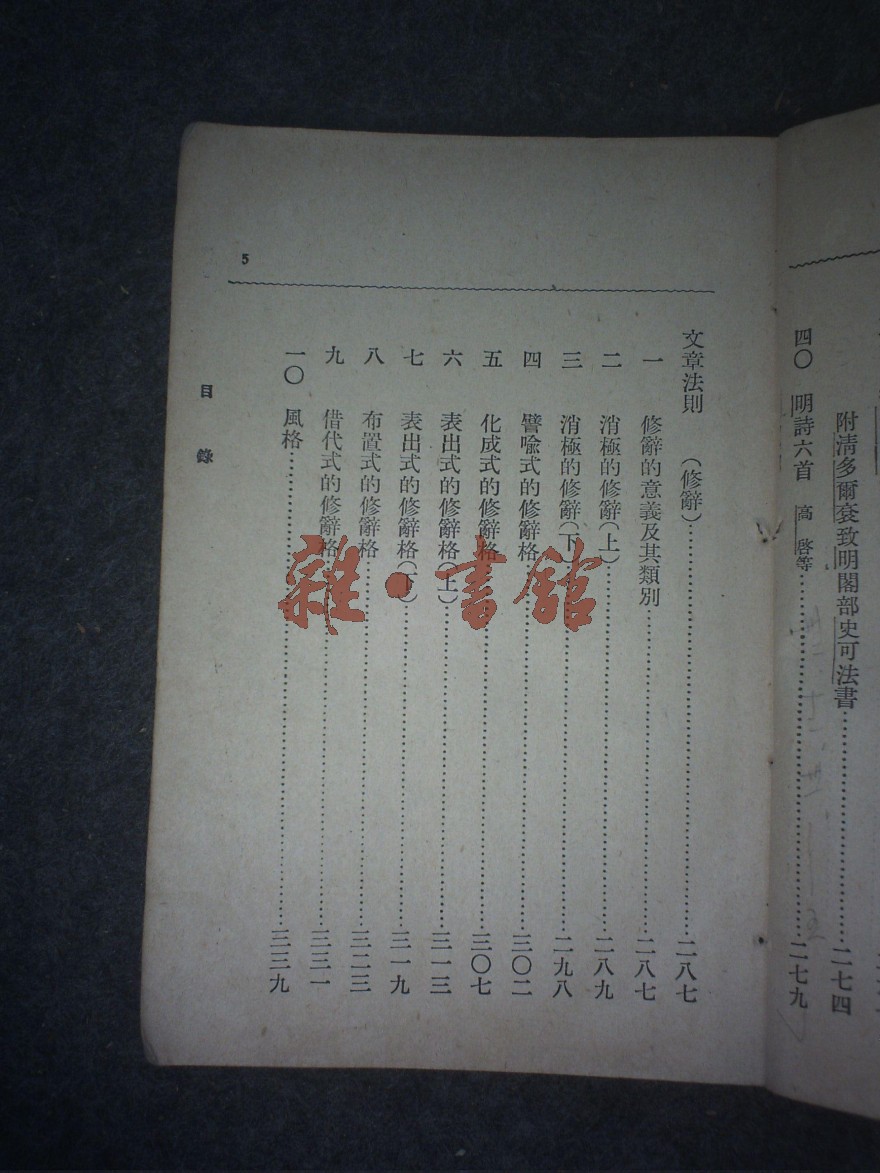 附清多爾袞致明閣部史可法書……二七四
四〇 明詩六首 高啓等……二七九
5
文章法則 (修辭)……二八七
一 修辭的意義及其類別……二八七
二 消極的修辭(上)……二八九
三 消極的修辭(下)……二九八
四 譬喻式的修辭格……三〇二
五 化成式的修辭格……三〇七
六 表出式的修辭格(上)……三一三
七 表出式的修辭格(下)……三一九
八 布置式的修辭格……三二三
九 借代式的修辭格……三三一
一〇 風格……三三九
目錄
雜·書館